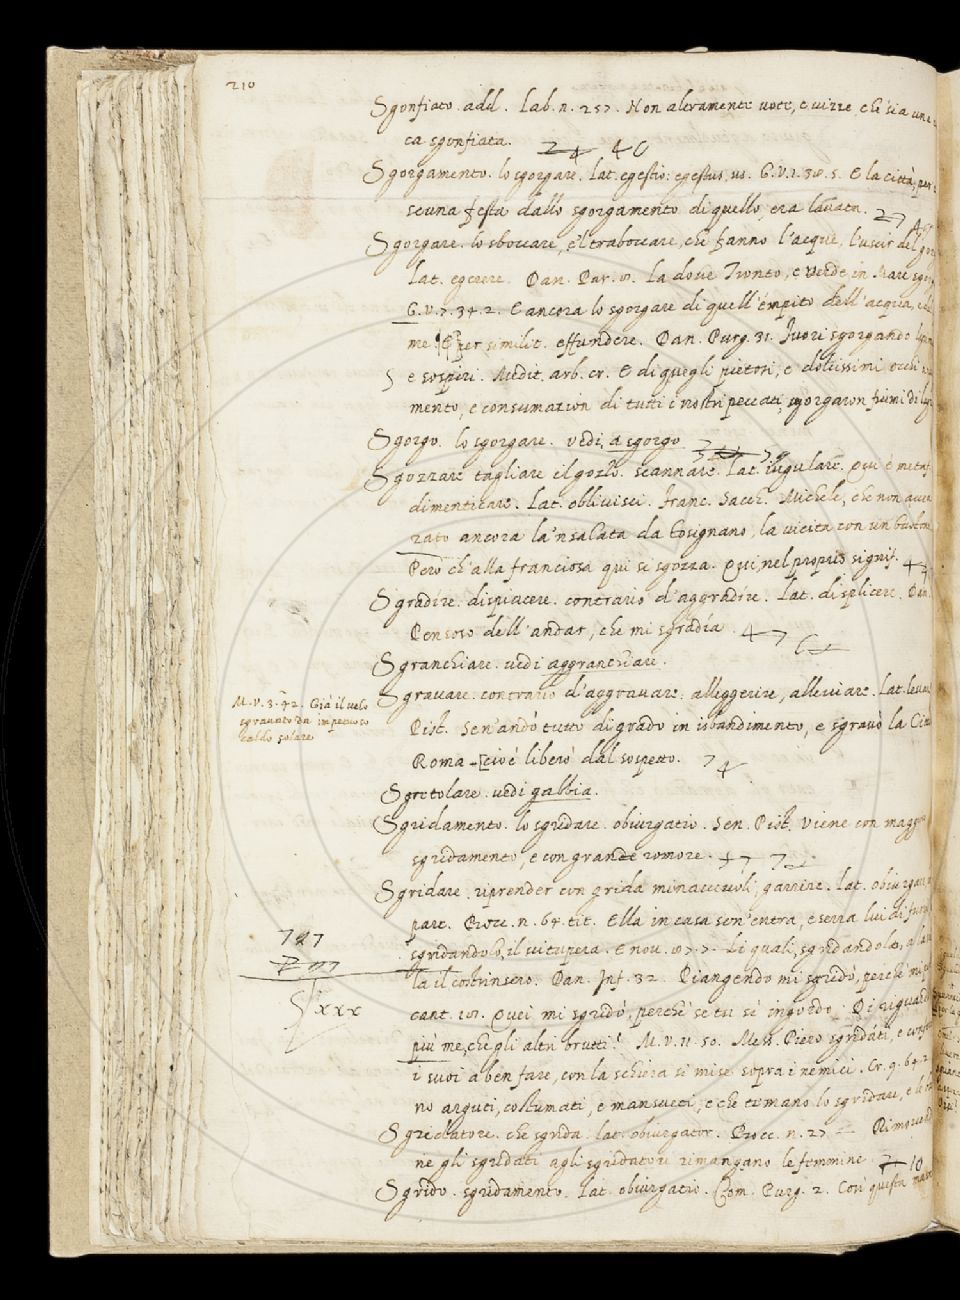 210
Sgonfiato. add. Lab. n. 257. Non altramente vote, e vizze, che sia una
ca sgonfiata. 24 40
Sgorgamento. lo sgorgare. Lat. egestio: egestus, us. G. V. 1. 38. 5. E la città, per
scuna festa dallo sgorgamento di quello, era lavata. 27
Sgorgare. lo sboccare, e'l traboccare, che fanno l'acque, l'uscir del
Lat. egerere. Dan. Par. La dove Tronto, e Verde in Mare
G. V. 7. 34. 2. E ancora lo sgorgare di quell'émpito dell'acqua,
me per similit. effundere. Dan. Purg. 31. Fuori sgorgando
e sospiri. Medit. arb. cr. E di quegli pietosi, e dolcissimi occhi
mento, e consumazion di tutti i nostri peccati, sgorgaron fiumi di
Sgorgo. lo sgorgare. vedi, a sgorgo
Sgozzare tagliare il gozzo. scannare. Lat. iugulare. Qui è metaf.
dimenticare. Lat. oblivisci. Franc. Sacch. Michele, che non avea
zato ancora la 'nsalata da Cosignano, la uscita con un bastone
Però ch'alla franciosa qui si sgozza. Qui, nel proprio signif.
Sgradire. dispiacere. contrario d'aggradire. Lat. displicere. Dan.
Pensoso dell'andar, che mi sgradía.
Sgranchiare. vedi aggranchiare.
Sgravare. contrario d'aggravare: alleggerire, alleviare. Lat. levare
M. V. 3. 42. Già il velo
sgravato da imperioso
caldo solare
Pist. Sen' andò tutto di grado in isbandimento, e sgravò la Città
Roma [cioè liberò dal sospetto. 74
Sgretolare. vedi gabbia.
Sgridamento. lo sgridare. obiurgatio. Sen. Pist. Viene con maggior
sgridamento, e con grande romore.
Sgridare. riprender con grida minaccevoli, garrire. Lat. obiurgare
pare. Bocc. n. 64. tit. Ella in casa sen'entra, e serra lui di fuori
sgridandolo, il vitupera. E nov. Li quali, sgridandolo,
la il costrinsero. Dan. Inf. 32. Piangendo mi sgridò, perché mi
cant. 18. Quei mi sgridò, perchè se tu sì ingordo, Di riguardar
più me, che gli altri brutti? M. V. 11. 50. Mess. Piero sgridati, e
i suoi a ben fare, con la schiera si mise sopra i nemici. Cr. 9. 64. 2
no arguti, costumati, e mansueti, e che temano lo sgridare,
Sgridatore. che sgrida. Lat. obiurgator. Bocc. n. 27
ne gli sgridati agli sgridatori rimangano le femmine. 10
Sgrido. sgridamento. Lat. obiurgatio. Com. Purg. 2. Così questa
xxx